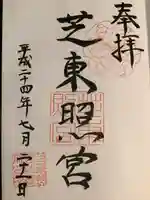 奉拝
芝東照宮
平成二十四年七月二十一日